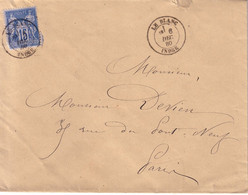 LE BLANC
6
DEC
80
INDRE
15
Monsieur,
Monsieur Devien
35 rue du Pont-Neuf
Paris